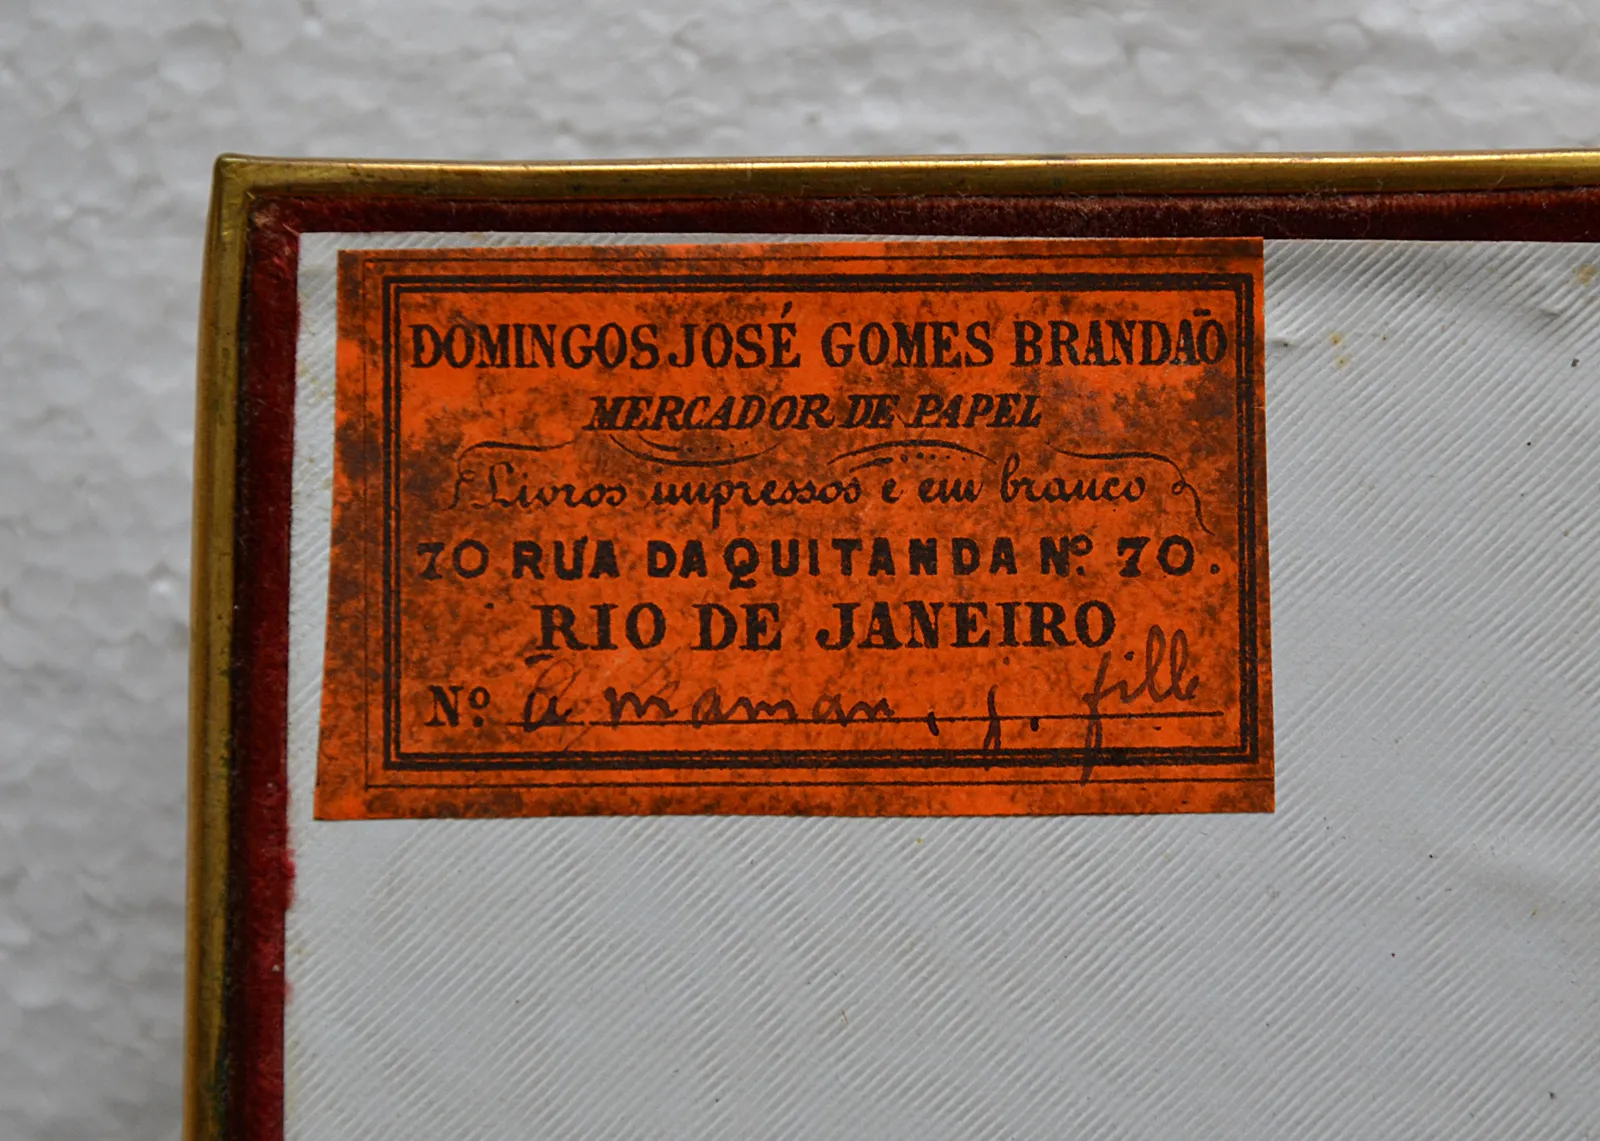 DOMINGOS JOSÉ GOMES BRANDÃO
MERCADOR DE PAPEL
Livros impressos e em branco
70 RUA DA QUITANDA Nº 70.
RIO DE JANEIRO
Nº a maman, j. fille